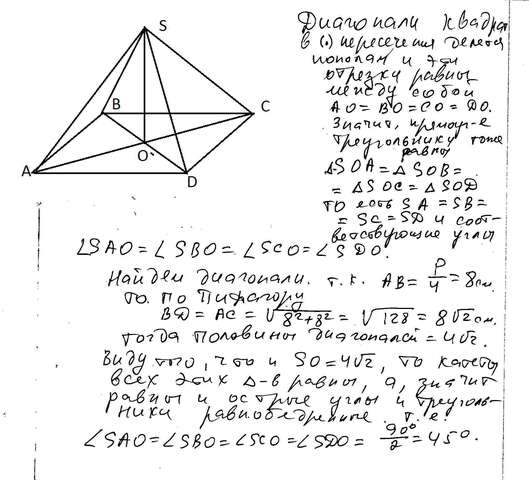 S
B
C
O
A
D
Диагонали квадрат
в (·) пересечения делятся
пополам и эти
отрезки равны
между собой
AO = BO = CO = DO.
Значит, прямоуг-е
треугольнику тоже
равны
△SOA = △SOB =
= △SOC = △SOD
то есть SA = SB =
= SC = SD и соот-
ветствующие углы
∠SAO = ∠SBO = ∠SCO = ∠SDO.
Найдем диагонали. т.к. AB = P/4 = 8см.
то по Пифагору
BD = AC = √8²+8² = √128 = 8√2 см.
тогда половины диагоналей = 4√2.
Виду того, что и SO = 4√2, то катеты
всех этих △-в равны, а, значит
равны и острые углы и треуголь-
ники равнобедренные т.е.
∠SAO = ∠SBO = ∠SCO = ∠SDO = 90°/2 = 450.